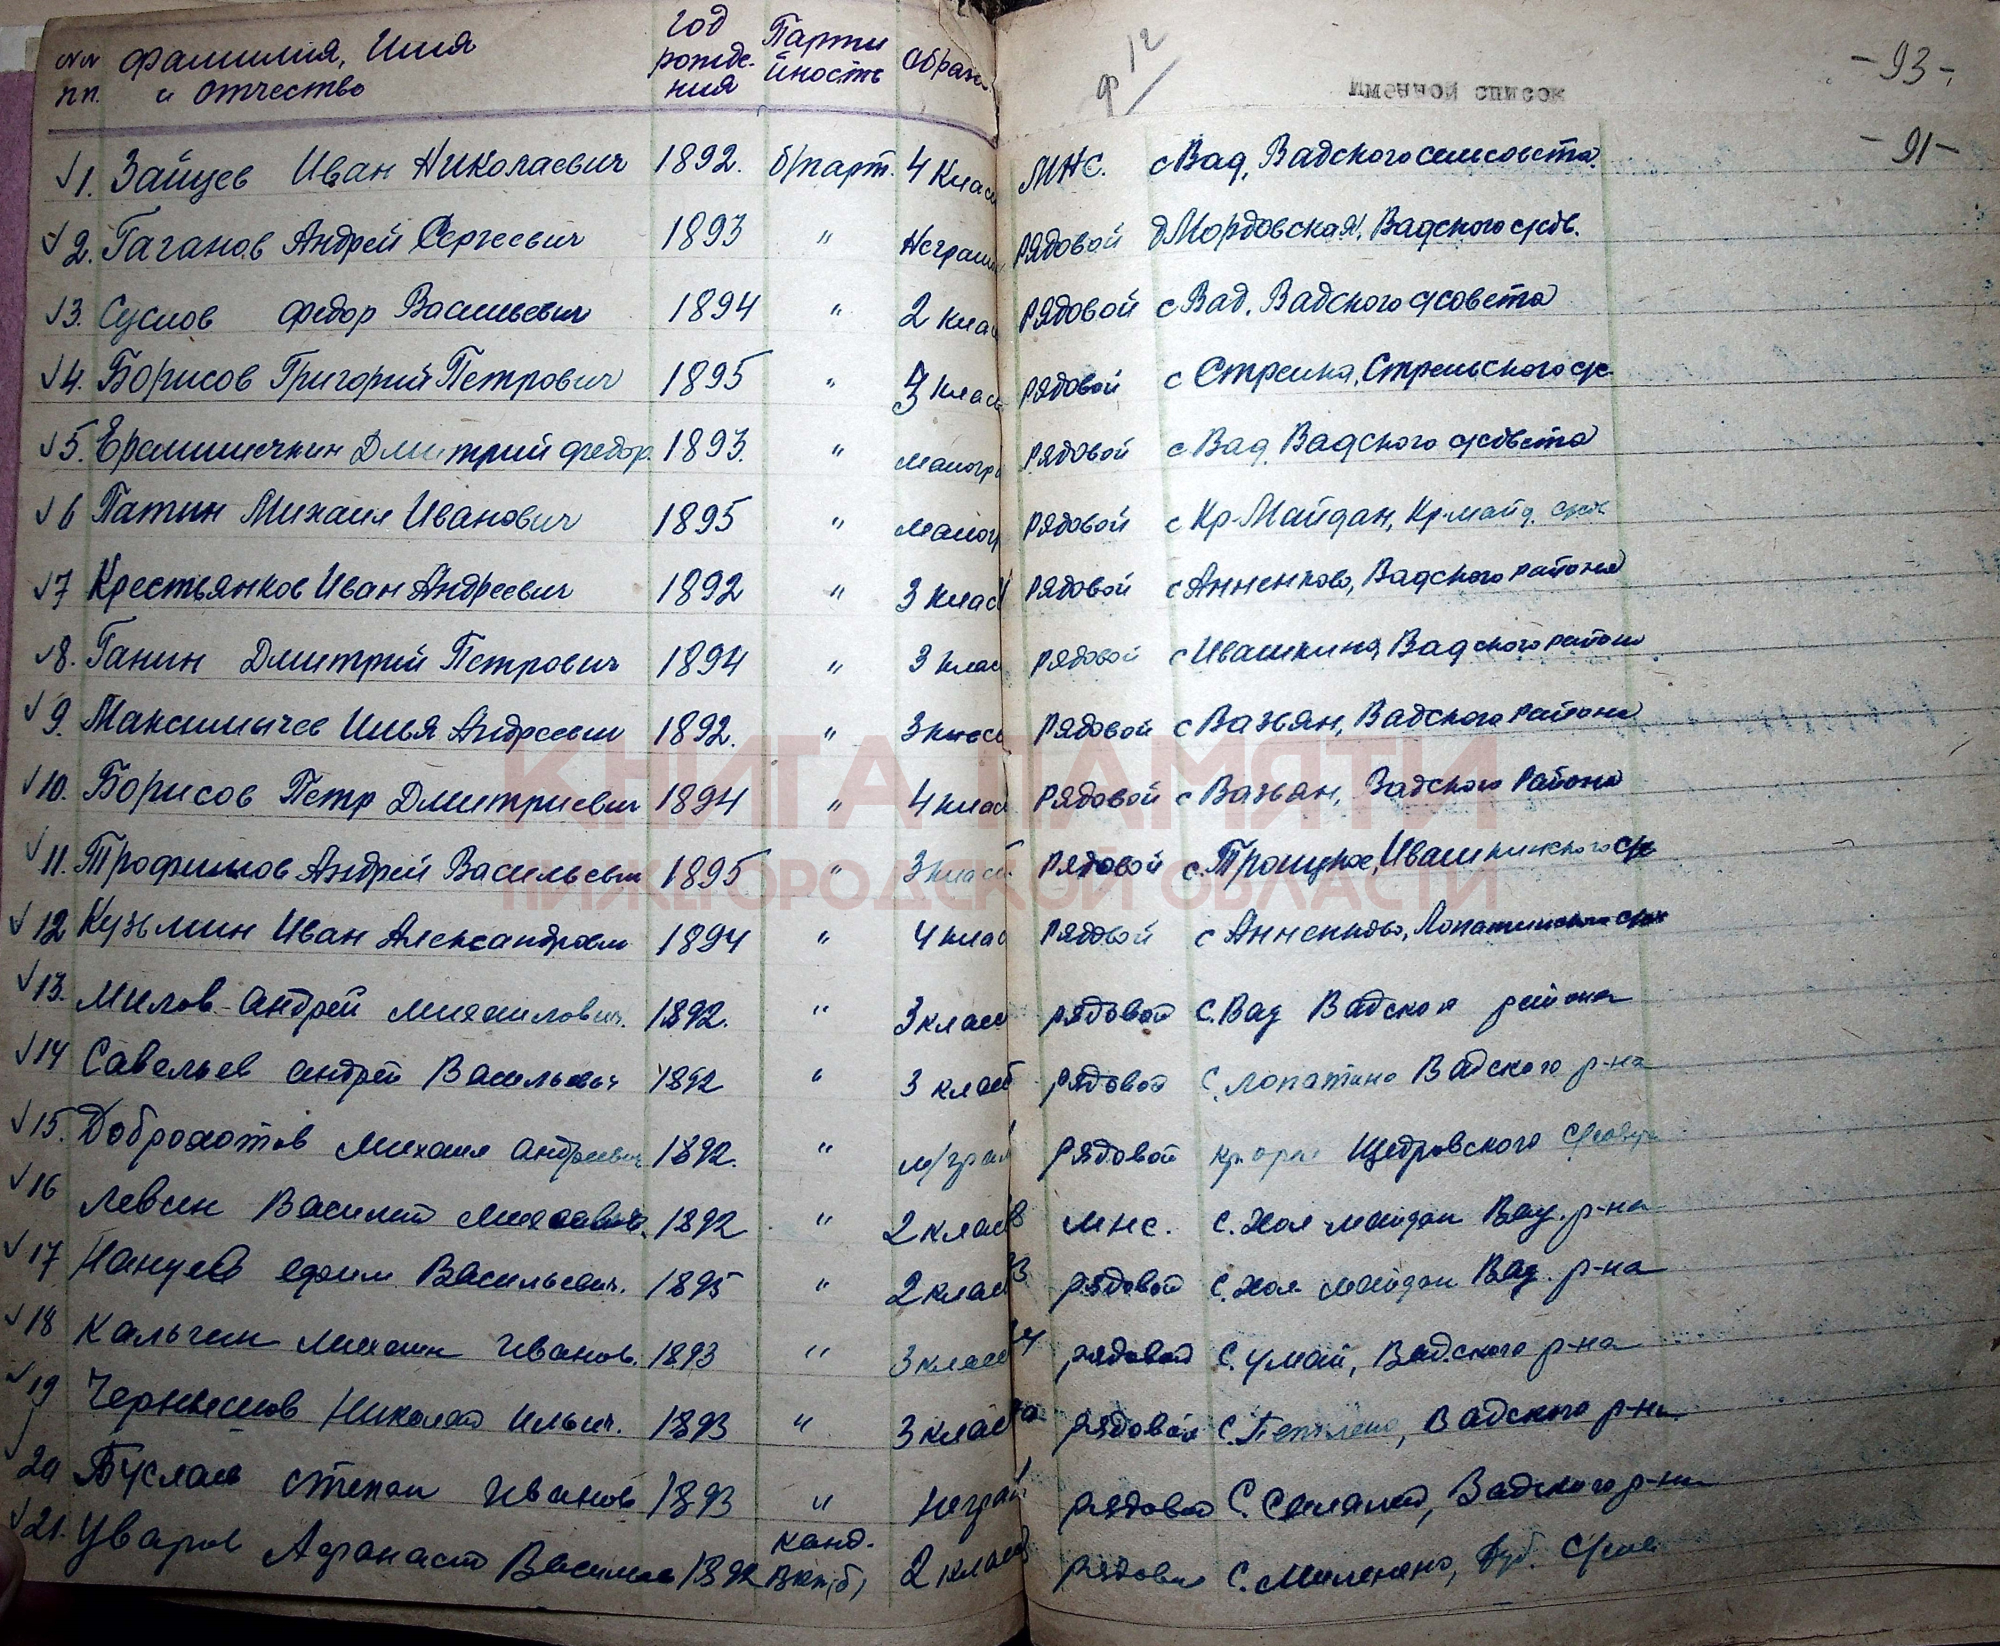 №№ Фамилия, Имя Год Парти Образо
пп. и отчество рожде- йность
ния
12
Ф
Именной список
-93-
-91-
√1. Зайцев Иван Николаевич 1892. б/парт. 4 клас МНС. с Вад, Вадского сельсовета.
√2. Гаганов Андрей Сергеевич 1893 " Неграм рядовой д Мордовская, Вадского с/сов.
√3. Суслов Федор Васильевич 1894 " 2 клас рядовой с Вад. Вадского с/совета
√4. Борисов Григорий Петрович 1895 " 3 класс рядовой с Стрелка, Стрельского с/с.
√5. Ерамишечкин Дмитрий Федор. 1893. " малогр рядовой с Вад. Вадского с/совета
√6 Патин Михаил Иванович 1895 " малогр рядовой с Кр-Майдан, Кр-майд. с/сов
√7 Крестьянков Иван Андреевич 1892 " 3 класс рядовой с Анненково, Вадского района
√8. Ганин Дмитрий Петрович 1894 " 3 клас рядовой с Ивашкина, Вадского района
√9. Максимычев Илья Андреевич 1892. " 3 класс рядовой с Вазьян, Вадского района
√10. Борисов Петр Дмитриевич 1894 " 4 клас рядовой с Вазьян, Вадского района
√11. Трофимов Андрей Васильевич 1895 " 3 класс рядовой с. Троицкое, Ивашкинского с/с
√12 Кузьмин Иван Александрович 1894 " 4 клас рядовой с Анненково, Лопатинского
√13. Милов Андрей Михаилович. 1892. " 3 класс рядовой с. Вад Вадского района
√14 Савельев Андрей Васильевич 1892 " 3 класс рядовой С. Лопатино Вадского р-на
√15. Доброхотов Михаил Андреевич 1892. " м/грам рядовой кр. орёл Щедровского
√16 Левин Василий 1892 " 2 класс мнс. С. Хол-майдан Вад. р-на
√17 Нанцев Ефим Васильевич. 1895 " 2 класс рядовой С. Хол-майдан Вад. р-на
√18 Кальгин Михаил Иванов. 1893 " 3 класс рядовой С. Умай, Вадского р-на
√19 Николай Ильич. 1893 " 3 клас рядовой С. Вадского р-на
√20 Буслаев Степан Иванов 1893 " неграм рядовой С. Вадского р-на
√21. Уваров Афанасий 1892 канд. ВКП(б) 2 класс рядовой С.
КНИГА ПАМЯТИ
НИЖЕГОРОДСКОЙ ОБЛАСТИ